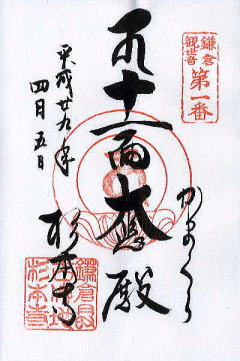 鎌倉
観世音
第一番
かまくら
十一面大悲殿
杉本寺
平成廿九年
四月五日
鎌倉最
杉本寺